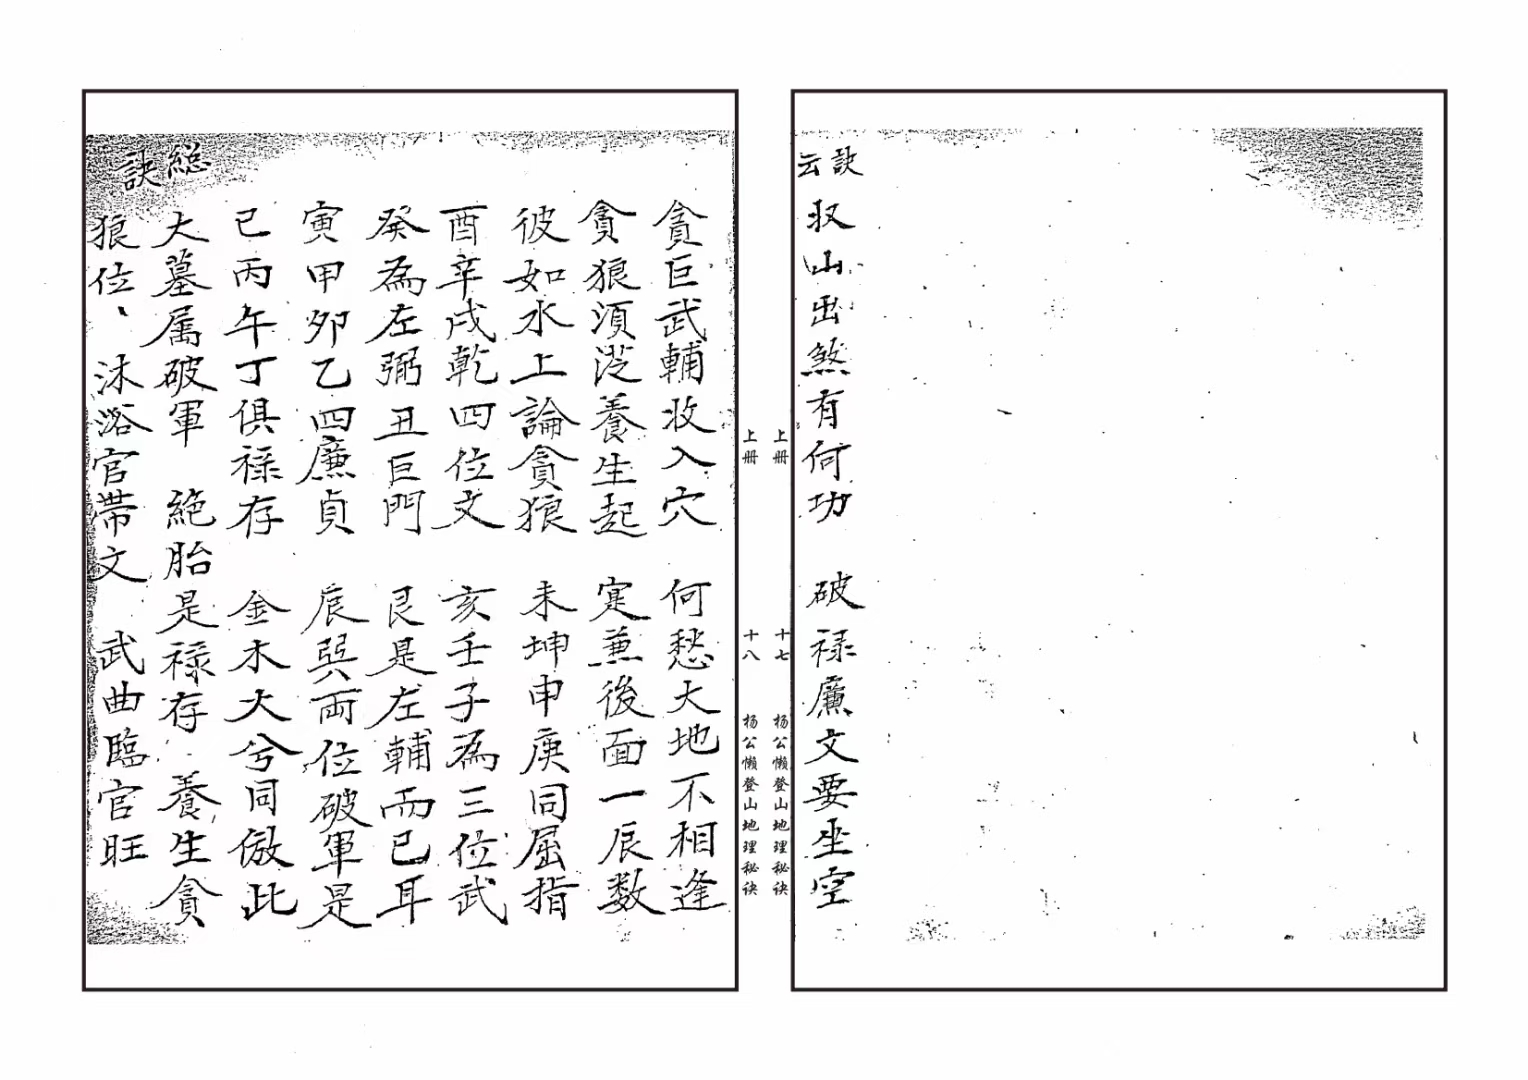 訣云
収山出煞有何功 破禄廉文要坐空
上册 十七 杨公懒登山地理秘诀
上册 十八 杨公懒登山地理秘诀
貪巨武輔收入穴 何愁大地不相逢
貪狼須從養生起 寔兼後面一辰数
彼如水上論貪狼 未坤申庚同屈指
酉辛戌乾四位文 亥壬子為三位武
癸為左弼丑巨門 艮是左輔而已耳
寅甲卯乙四廉貞 辰巽両位破軍是
巳丙午丁俱禄存 金木火兮同倣此
總訣
大墓属破軍 絕胎是禄存 養生貪
狼位、沐浴官帶文 武曲臨官旺